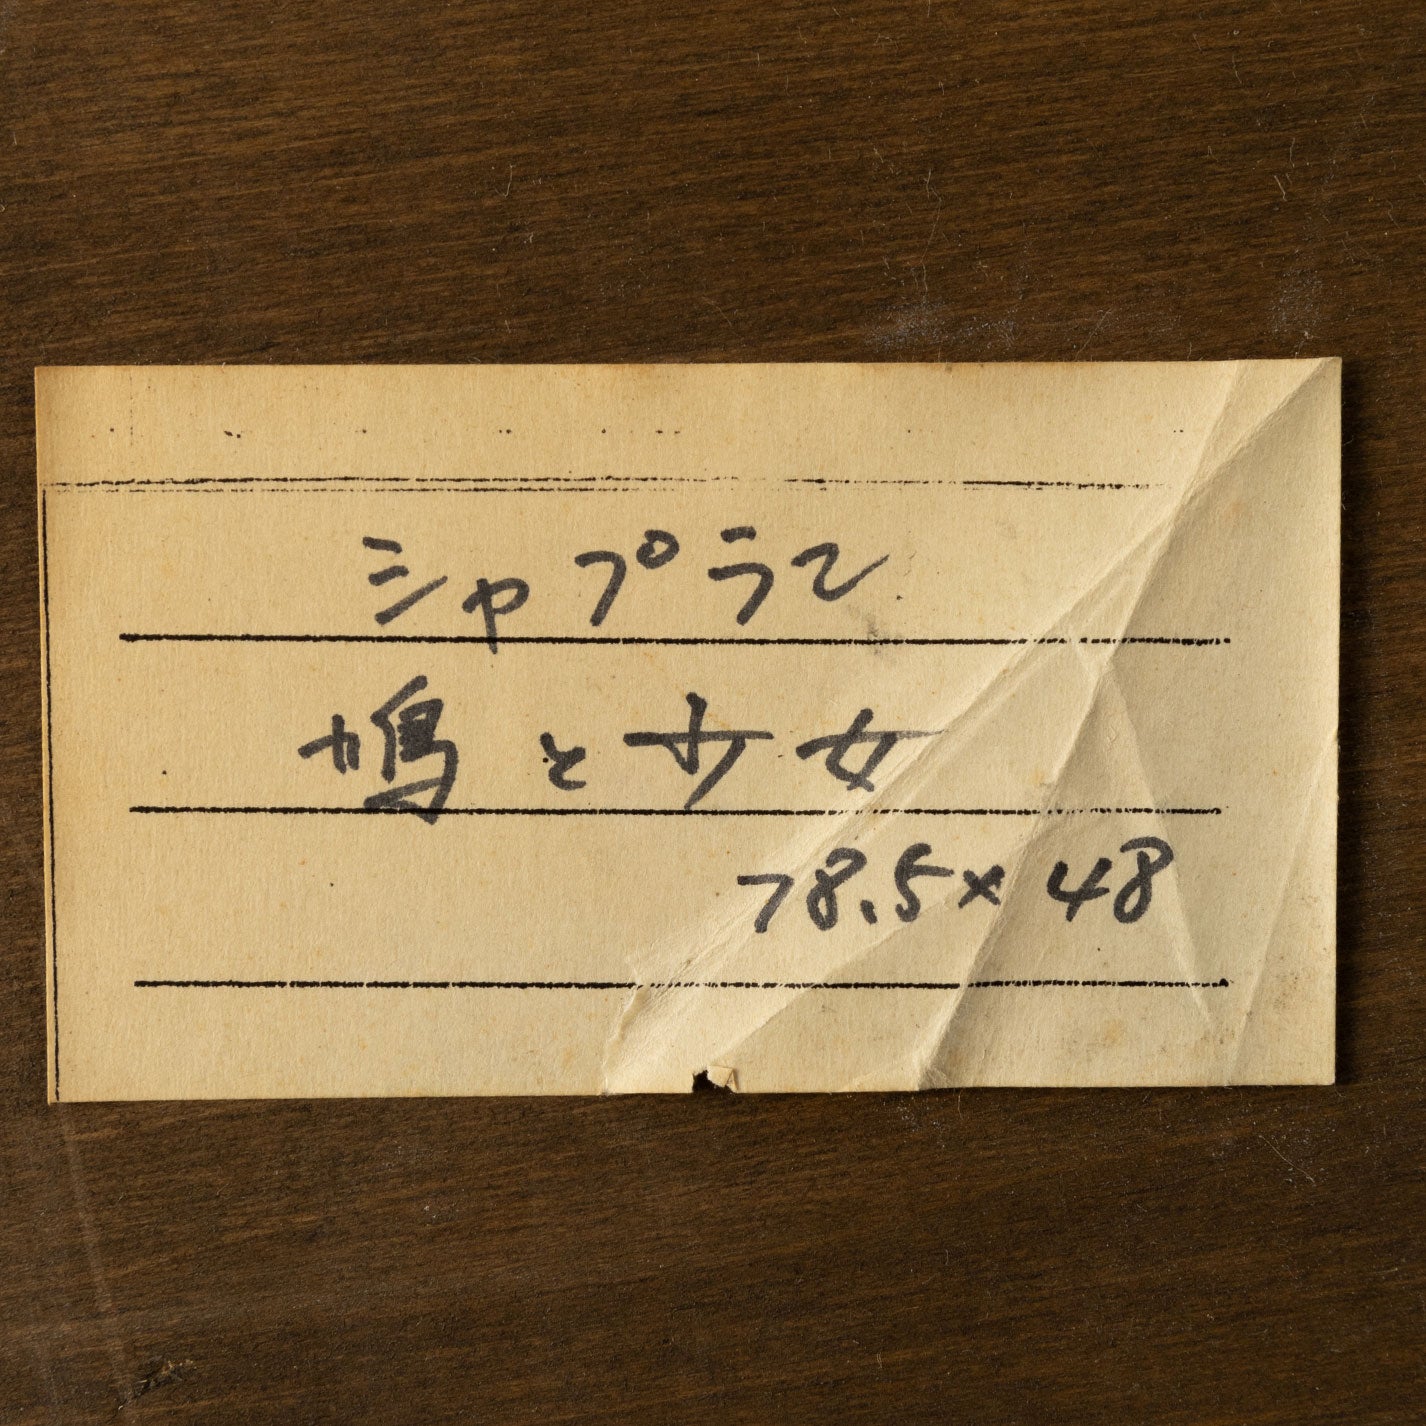 シャプラン
鳩と少女
78.5×48